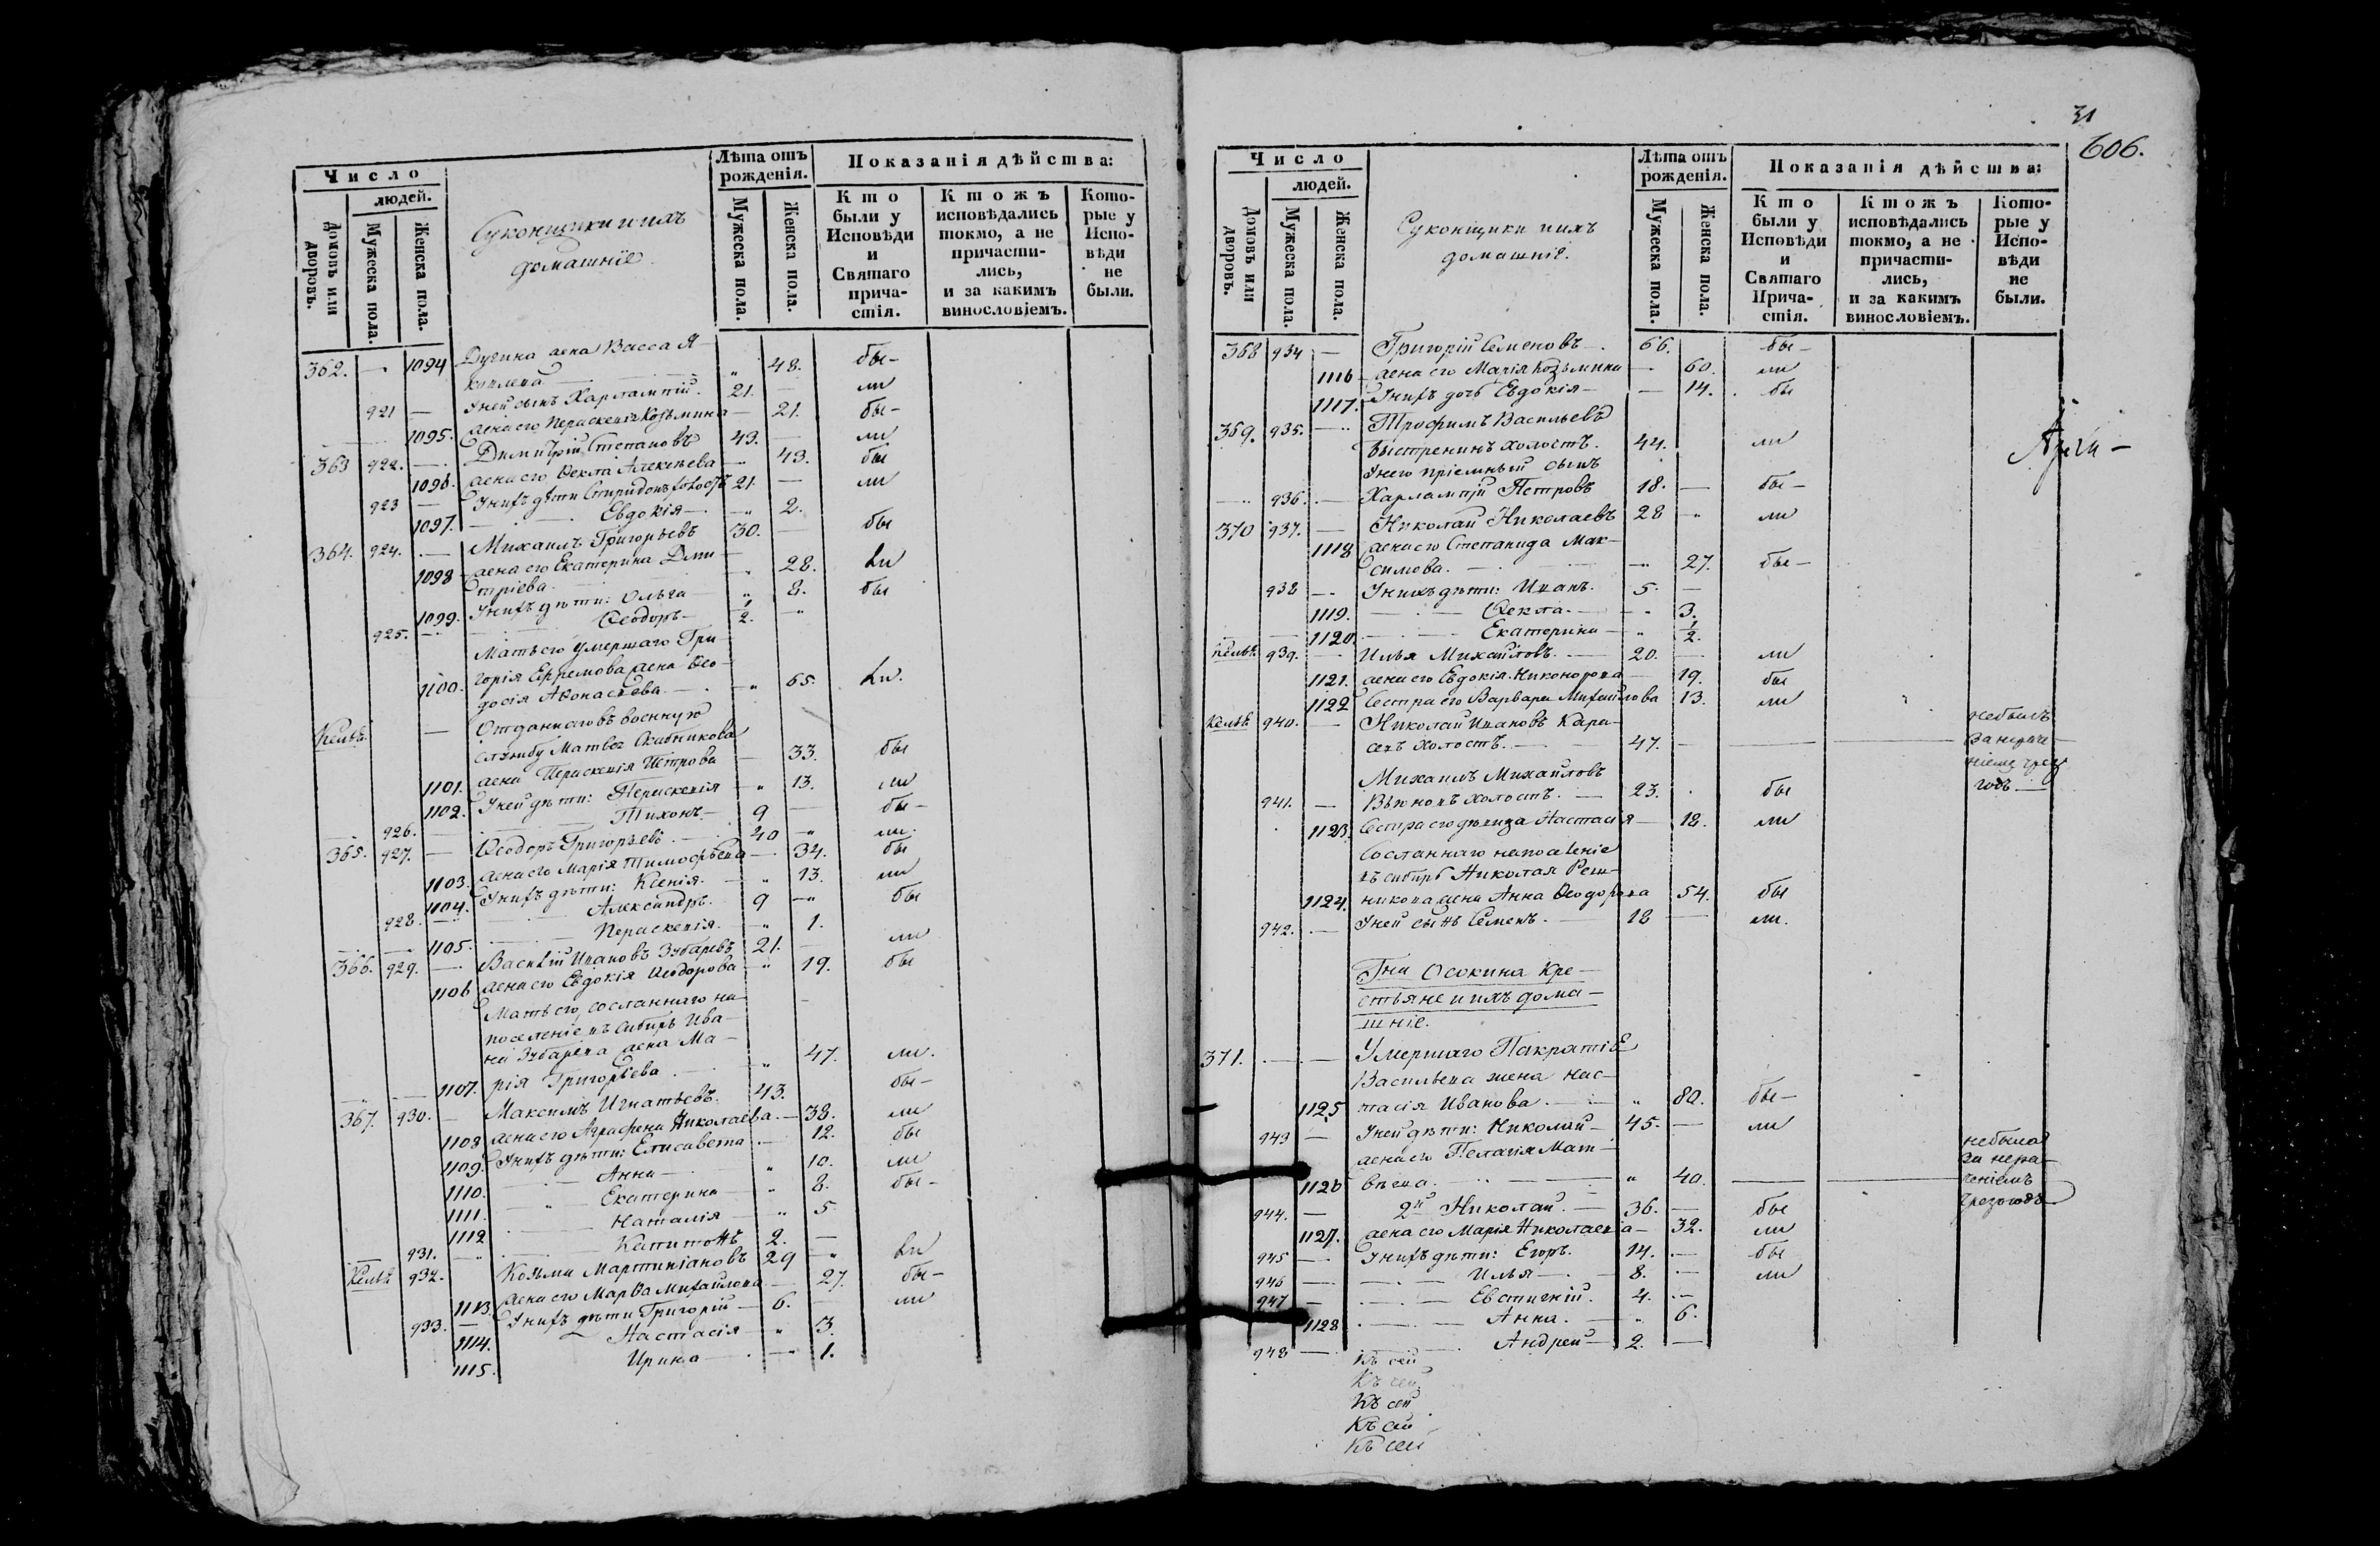 Число
людей.
Домовъ или дворовъ.
Мужеска пола.
Женска пола.
Суконщики и ихъ
домашніе.
Лѣта отъ
рожденія.
Мужеска пола.
Женска пола.
Показанія дѣйства:
Кто
были у
Исповѣди
и
Святаго
прича-
стія.
Ктожъ
исповѣдались
токмо, а не
причасти-
лись,
и за какимъ
винословіемъ.
Кото-
рые у
Испо-
вѣди
не
были.
362. — 1094 жена Васса Я-
48. бы-
921 — У ней сынъ Харлампій. 21. — ли
1095. жена его Параскевія Козьмина — 21. бы-
363 922. — Димитрій Степановъ 43. — ли
1096. жена его Ѳекла Алексѣева — 43. бы
923 — У нихъ дѣти Спиридонъ холостъ 21. — ли
1097. — Евдокія — „ 2.
364. 924. — Михаилъ Григорьевъ 30. — бы
1098 жена его Екатерина Дми-
тріева. „ 28. ли
1099. У нихъ дѣти: Ольга — „ 8. бы
925. — Ѳеодоръ — 1/2. „
Мать его умершаго Гри-
1100. горія Ефремова жена Ѳео-
досія Аѳонасьева — „ 65. ли.
Кельѣ — Отданнаго въ военную
службу Матвея
1101. жена Параскевія Петрова — 33. бы
1102. У ней дѣти: Параскевія — „ 13. ли
926. — Тихонъ — 9 — бы-
365. 927. — Ѳеодоръ Григорьевъ — 40 „ ли.
1103. жена его Марія Тимофѣева — 34. бы
1104. У нихъ дѣти: Ксенія. — „ 13. ли
928. — Александръ. 9 — „ бы
1105. — Параскевія. — „ 1.
366. 929. — Василій Ивановъ Зубаревъ 21. — ли
1106 жена его Евдокія Ѳеодорова — „ 19. бы
Мать его, сосланнаго на
поселеніе въ Сибирь Ива-
на Зубарева жена Ма-
1107. рія Григорьева. — „ 47. ли.
367. 930. — Максимъ Игнатьевъ. 43. бы-
1108 жена его Аграфена Николаева. — 38. ли
1109. У нихъ дѣти: Елисавета — 12. бы
1110. — Анна — „ 10. ли
1111. — „ Екатерина — „ 8. бы-
1112 — Наталія — „ 5
931. — „ Капитонъ 2. —
Кельѣ 932. Козьма Мартиніановъ 29 „ ли
1113. жена его Марѳа Михайлова — 27. бы-
933. — У нихъ дѣти Григорій — 6. — ли
1114. Настасія — „ 3.
1115. Ирина — . — 1.
31
606.
Число
людей.
Домовъ или дворовъ.
Мужеска пола.
Женска пола.
Суконщики и ихъ
домашніе.
Лѣта отъ
рожденія.
Мужеска пола.
Женска пола.
Показанія дѣйства:
Кто
были у
Исповѣди
и
Святаго
Прича-
стія.
Ктожъ
исповѣдались
токмо, а не
причасти-
лись,
и за какимъ
винословіемъ.
Кото-
рые у
Испо-
вѣди
не
были.
368 934 — Григорій Семеновъ — 66. бы —
1116 — жена его Марія Козьмина — 60. ли
1117. У нихъ дочь Евдокія — — 14. бы
369. 935. — Трофимъ Васильевъ
Быстренинъ холостъ. 44. ли
У него пріемный сынъ
936. — Харлампій Петровъ 18. — бы —
370 937. — Николай Николаевъ 28 „ ли
1118 жена его Степанида Мак-
симова. — „ 27. бы —
938 — У нихъ дѣти: Иванъ. 5. —
1119. — Ѳекла. — „ 3.
1120. — Екатерина — „ 1/2.
Кельѣ 939. — Илья Михайловъ. — 20. — ли
1121. жена его Евдокія Никонорова — 19. бы
1122 Сестра его Варвара Михайлова 13. ли
Кельѣ 940. — Николай Ивановъ Кара-
севъ холостъ. — 47. — небылъ
за нераче-
ніемъ чрез
годъ —
Михаилъ Михайловъ
941. — холостъ. — 23. бы
1123. Сестра его дѣвица Настасія — 18. ли
Сосланнаго на поселеніе
въ Сибирь Николая Реш-
1124. никова жена Анна Ѳеодорова 54. бы
942. — У ней сынъ Семенъ. — 18 — ли.
Гна Осокина Кре-
стьяне и ихъ дома-
шніе.
371. — Умершаго
Васильева жена Нас-
1125 тасія Иванова. — „ 80. бы —
943 — У ней дѣти: Николай — 45. — ли
жена его Пелагія Мат-
1126 вѣева. — „ 40. — небыла
за нера-
ченіемъ
чрез годъ
944. — 2й Николай. — 36. — бы
1127. жена его Марія Николаева — 32. ли
945 — У нихъ дѣти: Егоръ. 14. — бы
946 — Илья — 8. — ли
947 — Евстигнѣй. 4. —
1128 — Анна. — „ 6.
948 — Андрей — 2. —
Къ сей
Къ сей
Къ сей
Къ сей
Къ сей